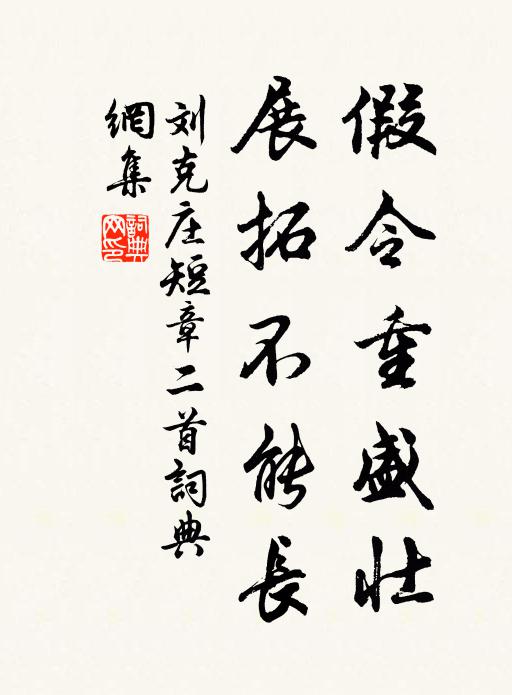 假令重盛壮
展拓不能長
刘克庄短章二首詞典
網集
詞典网印